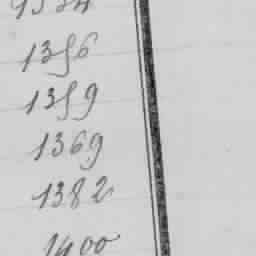 1356
1359
1369
1382
1400